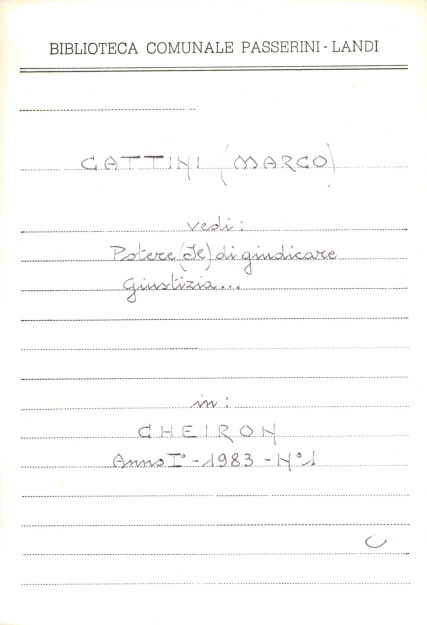 BIBLIOTECA COMUNALE PASSERINI - LANDI
CATTINI (MARCO)
vedi:
Potere (Il) di giudicare
Giustizia...
in:
CHEIRON
Anno I° - 1983 - N° 1
C